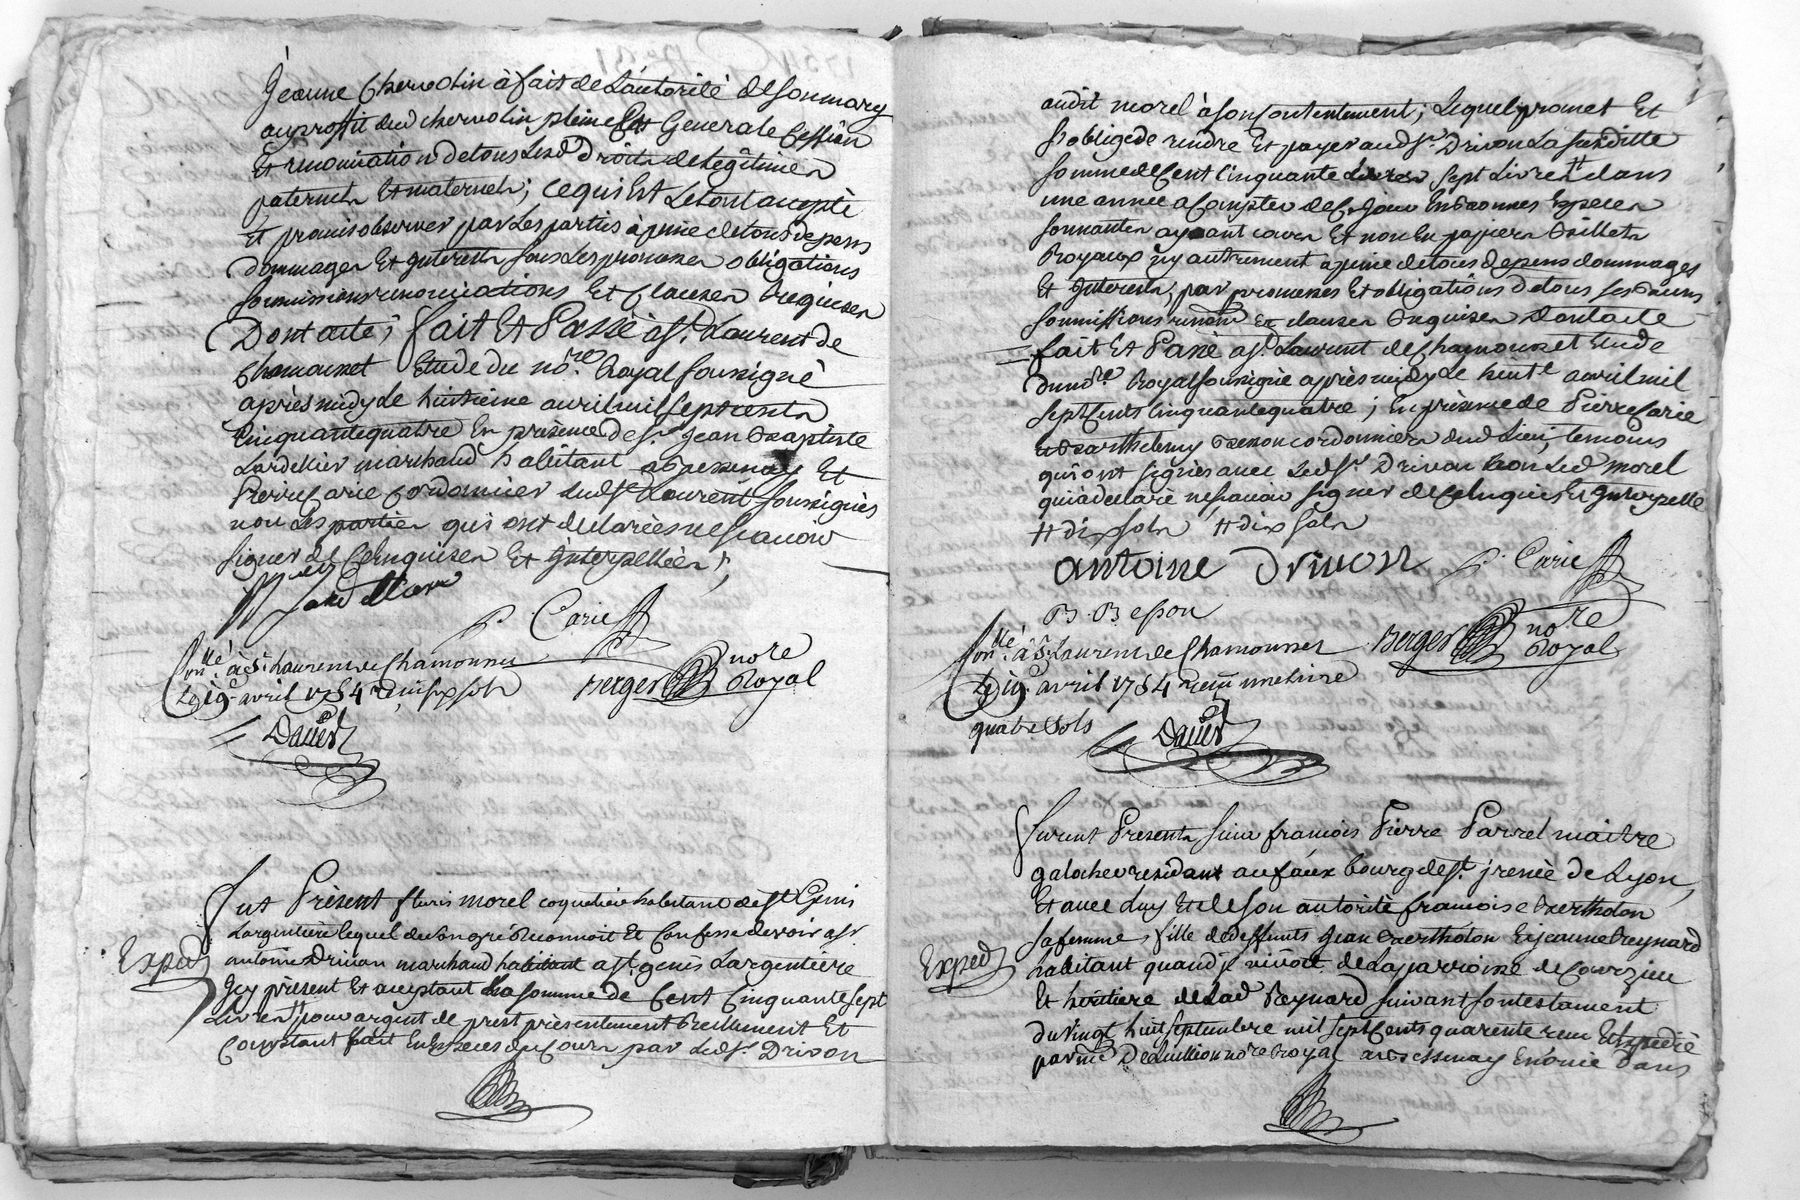 Jeanne Chervolin à fait de L'autorité de Son mary
au proffit dud chervolin pleine Et Generale Cession
Et renonciation de tous Lesd droits de Legitimes
paternels Et maternels; ce qui Est Le tout accepté
Et promis observer par Les parties à peine de tous depens
dommages Et Interests sous Les promesses obligations
soumissions renonciations Et Clauses Requises
Dont acte; fait Et Passé à st Laurent de
Chamousset Etude du nore Royal soussigné
après midy Le huitieme avril mil sept cents
Cinquante quatre En presence de sr Jean Baptiste
Lardellier marchand habitant à Bessenay Et
Pierre Carie Cordonnier dudt st Laurent soussignés
non Les parties qui ont declarées ne scavoir
signer de Ce Enquises Et Interpellées;
P. Carie
Berger nore Royal
Conllé à St Laurent de Chamousset
Le 19e avril 1754 reçu six sols
David
Fut Present fleuris morel coquetier habitant de st Genis
Largentiere lequel de son gré Reconnoit Et Confesse devoir à sr
Exped
antoine Drivon marchand habitant à st genis Largentiere
Icy present Et acceptant La somme de Cent Cinquante sept
Livres tt pour argent de prest presentement Reellement Et
Comptant fait En Especes du Cours par Ledt sr Drivon
audit morel à son Contentement; Lequel promet Et
s'oblige de rendre Et payer audt sr Drivon La susditte
somme de Cent Cinquante sept Livres tt dans
une année à Compter de Ce Jour En bonnes Especes
sonnantes ayant cours Et non En papiers Billets
Royaux ny autrement à peine de tous depens dommages
Et Interests, par promesses Et obligations de tous ses biens
soumissions renons Et clauses Requises Dont acte
fait Et Passé à st Laurent de Chamousset Etude
du nore Royal soussigné après midy Le huite avril mil
sept Cents Cinquante quatre; En presence de Pierre Carie
et Barthelemy Besson cordonniers dud Lieu, temoins
qui ont signés avec Ledt sr Drivon non Led morel
qui à declaré ne scavoir signer de Ce Enquis Et Interpellé
tt dix sols tt dix sols
antoine Drivon P. Carie
B. Besson
Berger nore Royal
Conllé à St Laurent de Chamousset
Le 19e avril 1754 reçu une livre
quatre sols
David
Furent Presents sieur francois Pierre Parrel maitre
galocheur residant au faux bourg de st jrenée de Lyon,
Et avec Luy Et de son autorité francoise Bertholon
sa femme, fille de deffunts Jean Bertholon Et jeanne Reynard
Exped
habitant quand jl vivoit de La parroisse de Courzieu
Et heritiere de Lad Reynard suivant son testament
du Vingt huit septembre mil sept Cents quarente Et Expedié
par me Decullion nore Royal à Bessenay Enoncé dans